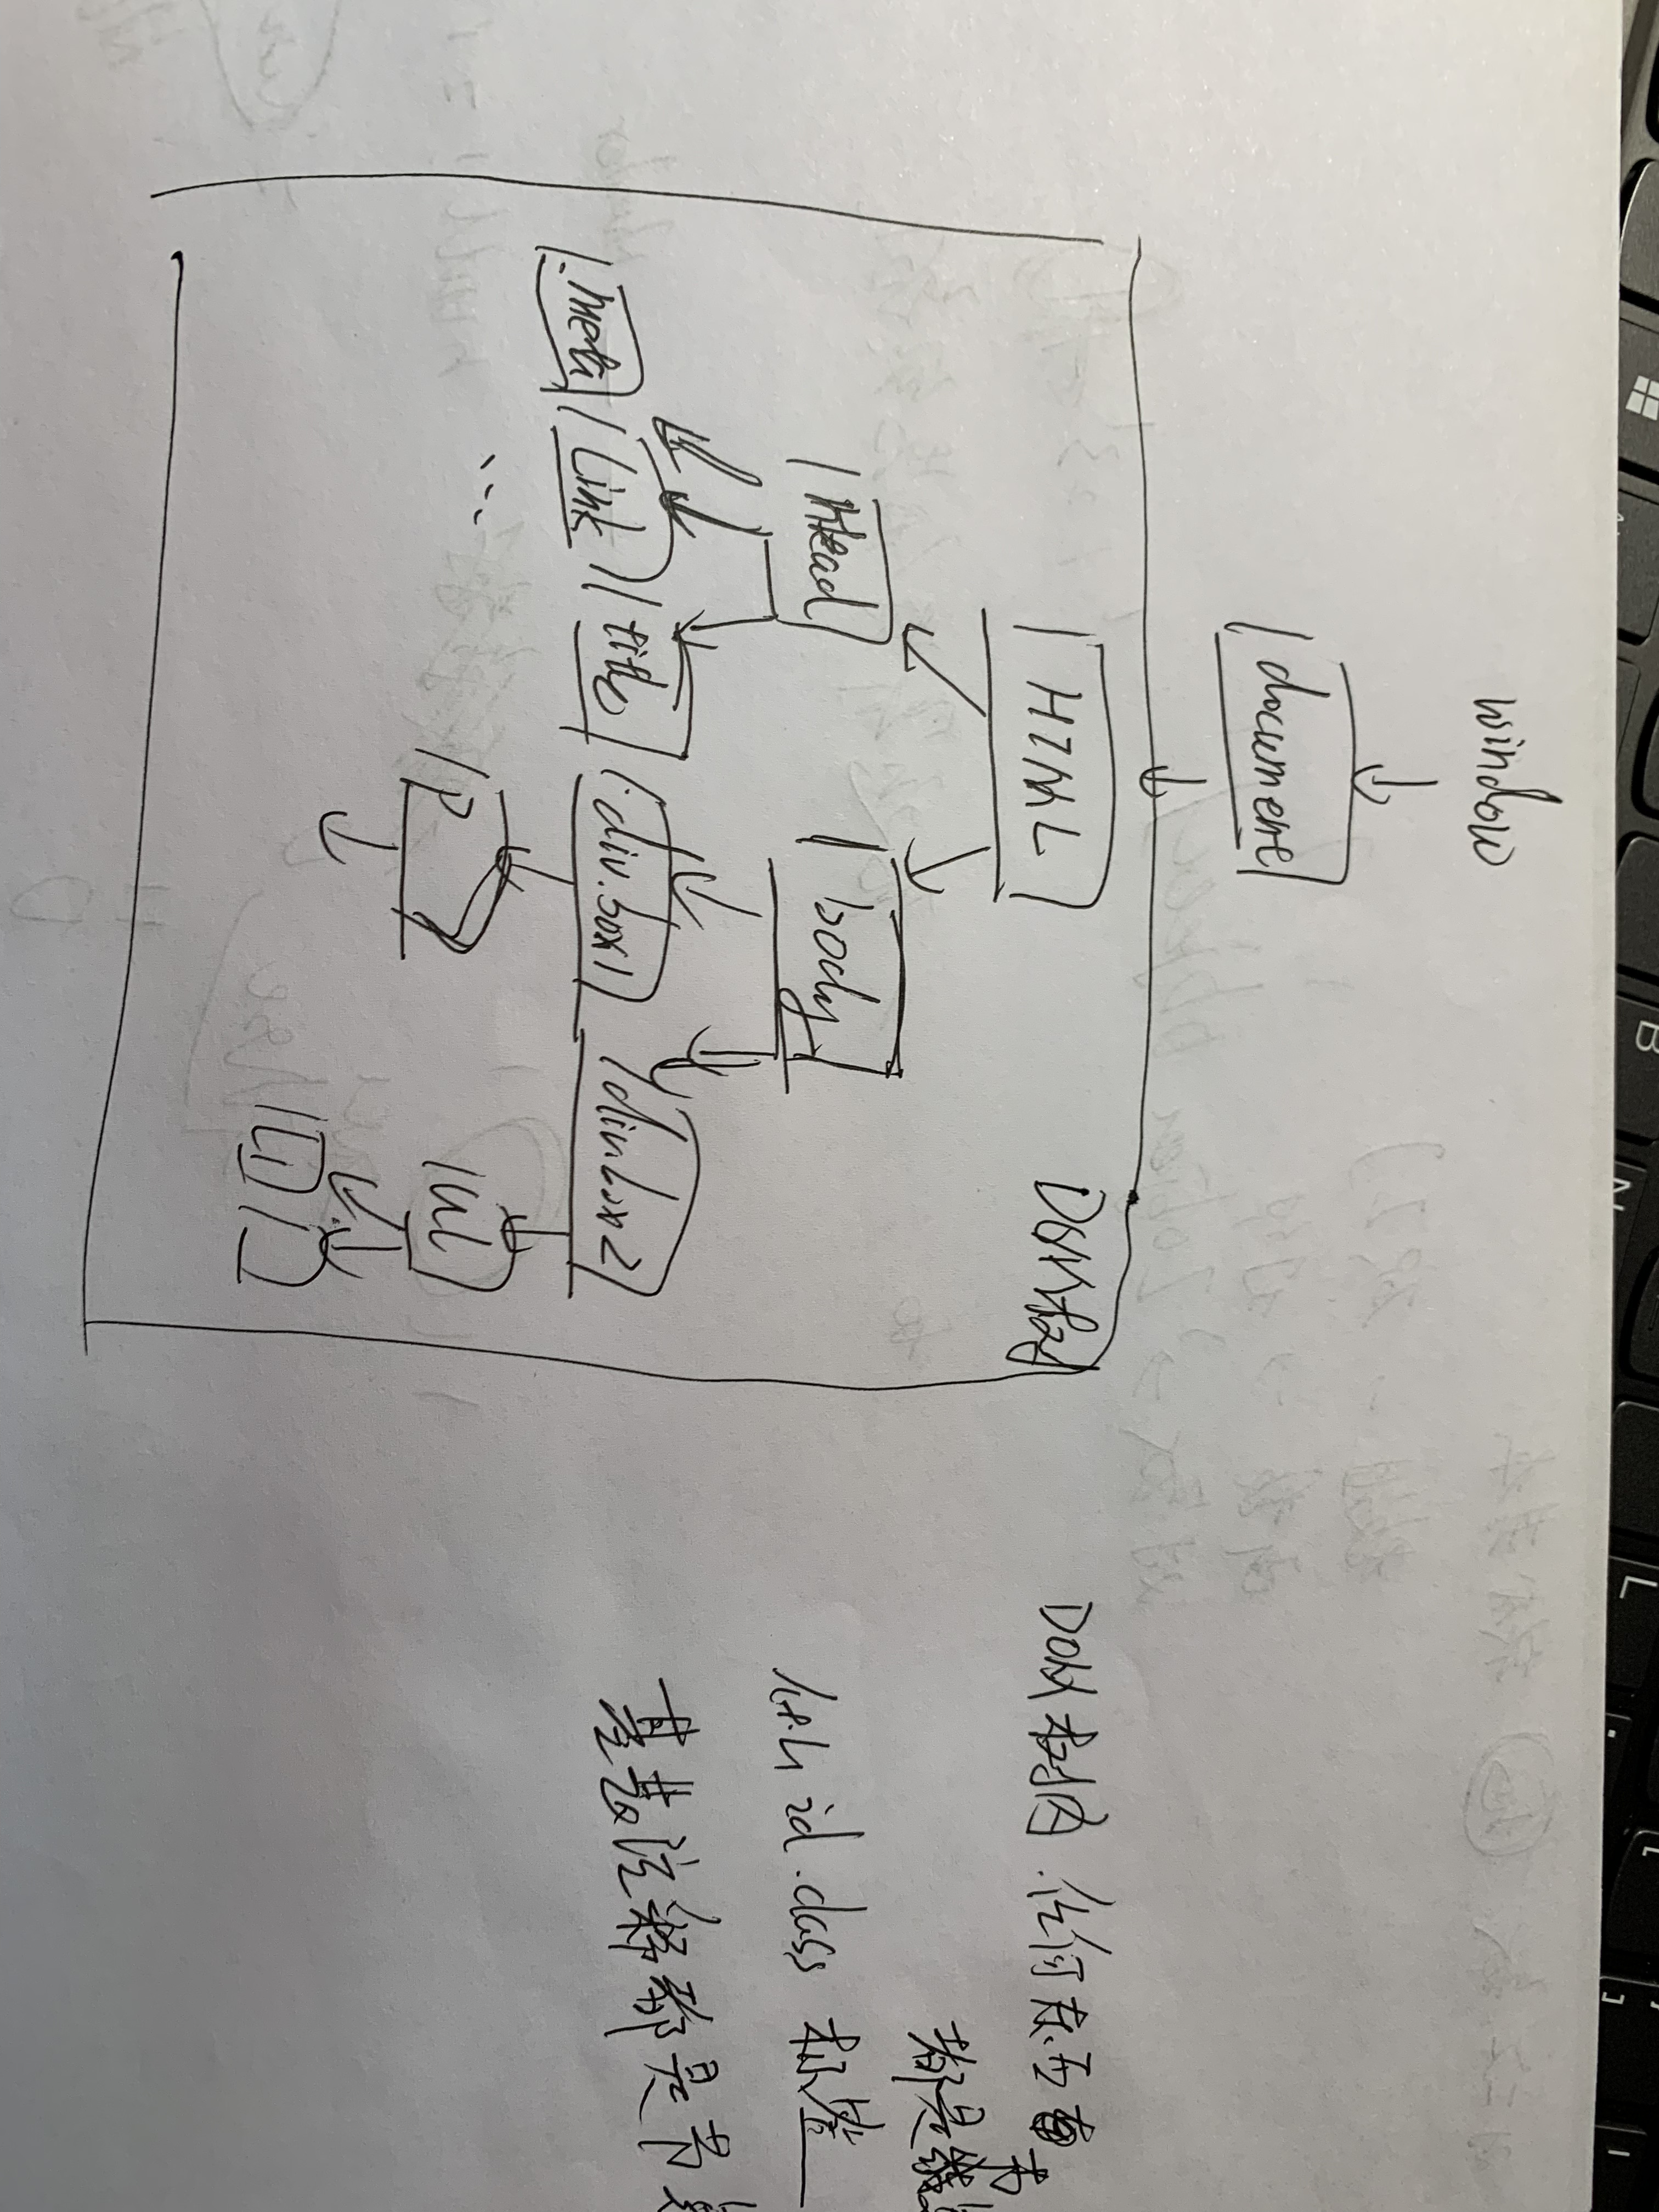 window
document
HTML
DOM树
Head
body
meta
Link
title
div.box1
div.box2
...
p
ul
li
DOM树内,任何东西
都是
id.class 标签
甚至注释都是节